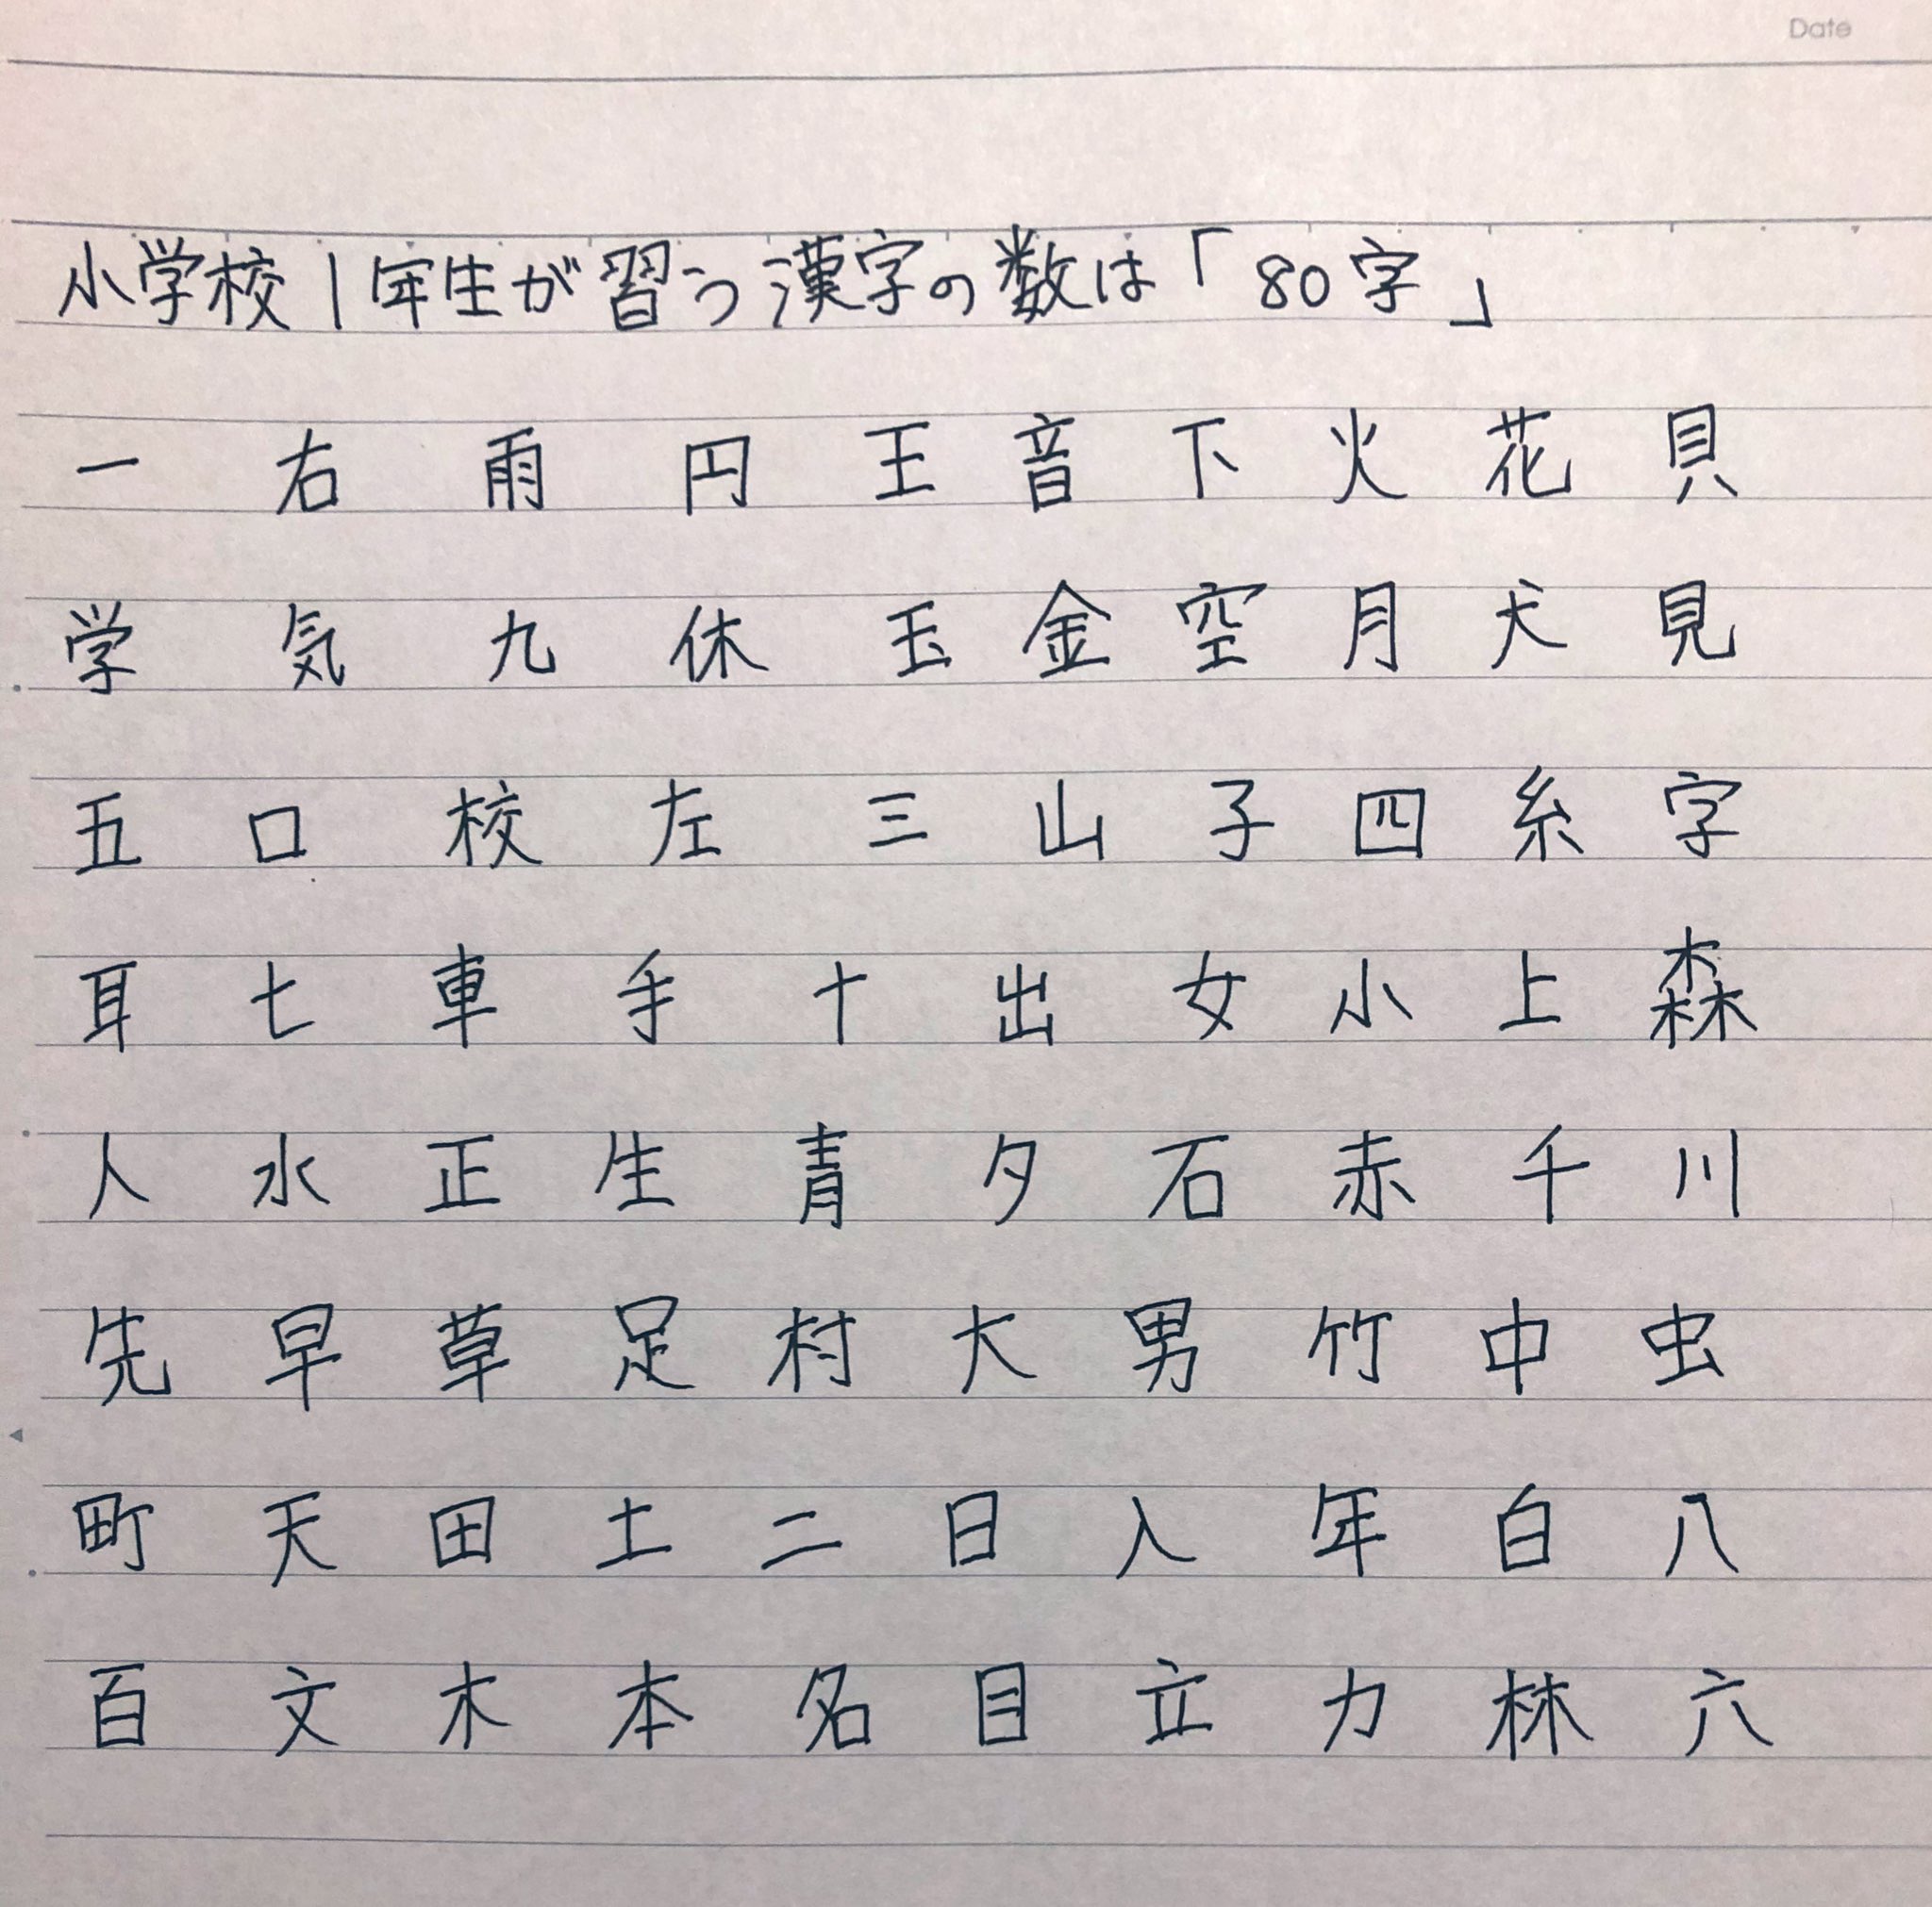 Date
小学校1年生が習う漢字の数は「80字」
一 右 雨 円 王 音 下 火 花 貝
学 気 九 休 玉 金 空 月 犬 見
五 口 校 左 三 山 子 四 糸 字
耳 七 車 手 十 出 女 小 上 森
人 水 正 生 青 夕 石 赤 千 川
先 早 草 足 村 大 男 竹 中 虫
町 天 田 土 二 日 入 年 白 八
百 文 木 本 名 目 立 力 林 六